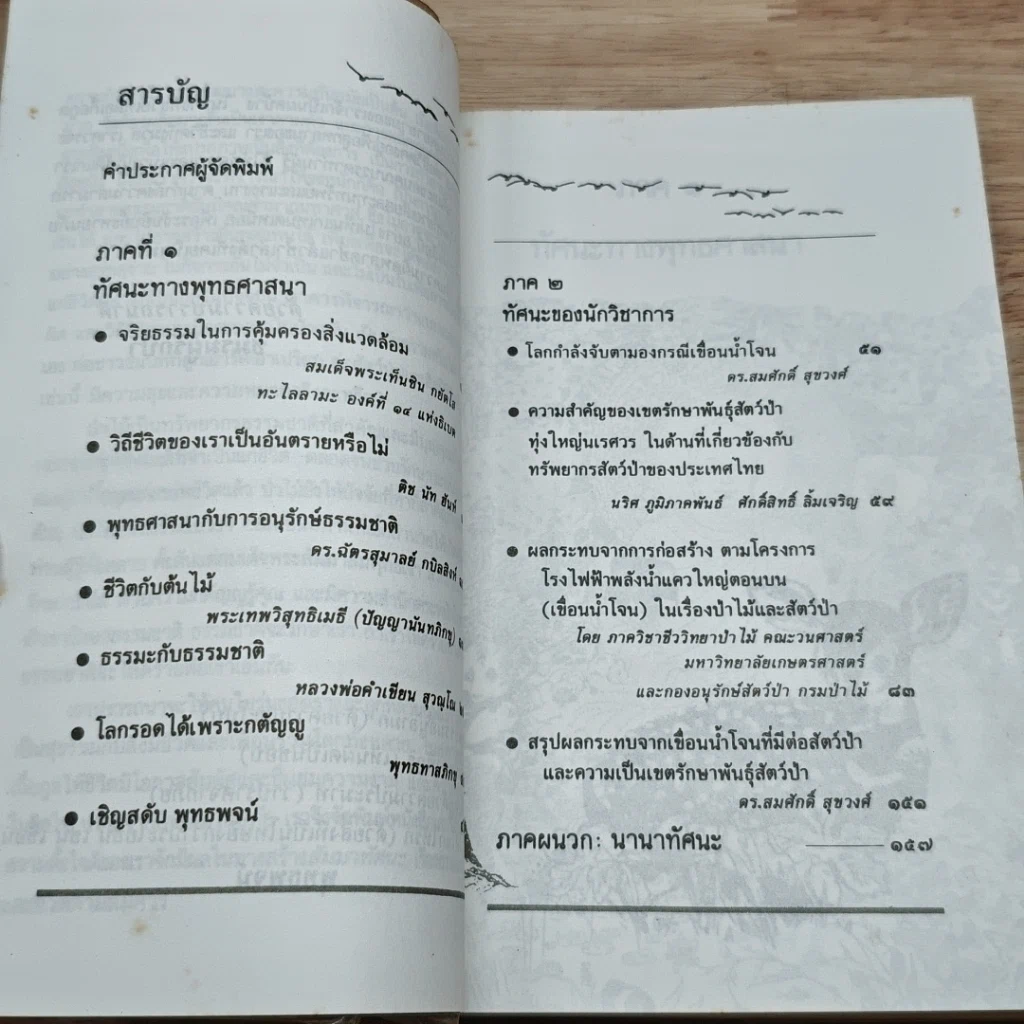 สารบัญ
คำประกาศผู้จัดพิมพ์
ภาคที่ ๑
ทัศนะทางพุทธศาสนา
● จริยธรรมในการคุ้มครองสิ่งแวดล้อม
สมเด็จพระเท็นซิน กยัตโส
ทะไลลามะ องค์ที่ ๑๔ แห่งธิเบต
● วิถีชีวิตของเราเป็นอันตรายหรือไม่
ติช นัท ฮันห์
● พุทธศาสนากับการอนุรักษ์ธรรมชาติ
ดร.ฉัตรสุมาลย์ กบิลสิงห์
● ชีวิตกับต้นไม้
พระเทพวิสุทธิเมธี (ปัญญานันทภิกขุ)
● ธรรมะกับธรรมชาติ
หลวงพ่อคำเขียน สุวณฺโณ
● โลกรอดได้เพราะกตัญญู
พุทธทาสภิกขุ
● เชิญสดับ พุทธพจน์
ภาค ๒
ทัศนะของนักวิชาการ
● โลกกำลังจับตามองกรณีเขื่อนน้ำโจน ๕๑
ดร.สมศักดิ์ สุขวงศ์
● ความสำคัญของเขตรักษาพันธุ์สัตว์ป่า
ทุ่งใหญ่นเรศวร ในด้านที่เกี่ยวข้องกับ
ทรัพยากรสัตว์ป่าของประเทศไทย
นริศ ภูมิภาคพันธ์ ศักดิ์สิทธิ์ ลิ้มเจริญ ๕๙
● ผลกระทบจากการก่อสร้าง ตามโครงการ
โรงไฟฟ้าพลังน้ำแควใหญ่ตอนบน
(เขื่อนน้ำโจน) ในเรื่องป่าไม้และสัตว์ป่า
โดย ภาควิชาชีววิทยาป่าไม้ คณะวนศาสตร์
มหาวิทยาลัยเกษตรศาสตร์
และกองอนุรักษ์สัตว์ป่า กรมป่าไม้ ๘๓
● สรุปผลกระทบจากเขื่อนน้ำโจนที่มีต่อสัตว์ป่า
และความเป็นเขตรักษาพันธุ์สัตว์ป่า
ดร.สมศักดิ์ สุขวงศ์ ๑๕๑
ภาคผนวก: นานาทัศนะ ๑๕๗